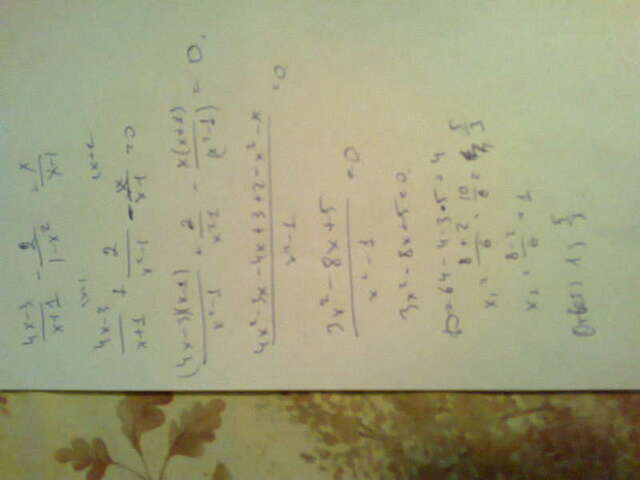 (4x-3)/(x+1) - 2/(1-x²) = x/(x-1)
(4x-3)/(x+1) + 2/(x²-1) - x/(x-1) = 0
(4x-3)(x-1)/(x²-1) + 2/(x²-1) - x(x+1)/(x²-1) = 0.
(4x²-3x-4x+3+2-x²-x)/(x²-1) = 0
(3x²-8x+5)/(x²-1) = 0
3x²-8x+5=0.
D=64-4·3·5=4
x₁ = (8+2)/6 = 10/6 = 5/3
x₂ = (8-2)/6 = 1
Ответ: 1; 5/3